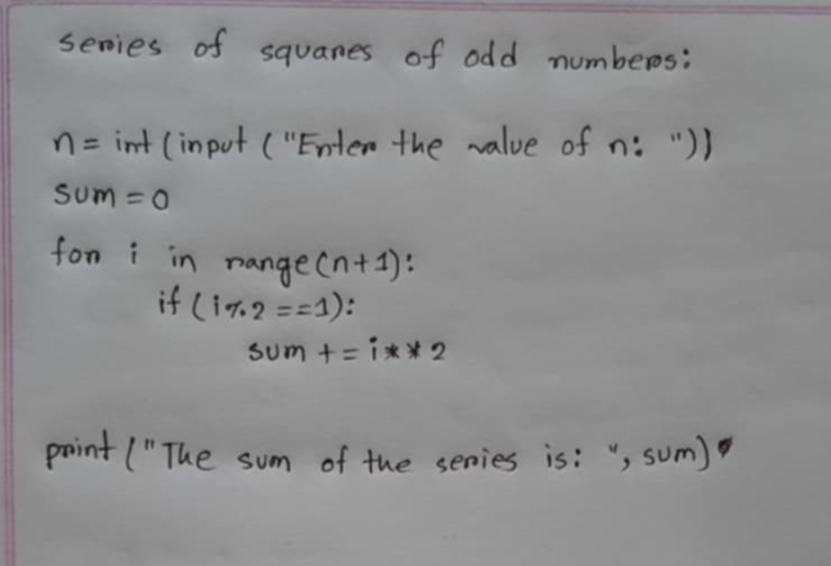 series of squares of odd numbers:
n = int (input ("Enter the value of n: "))
sum = 0
for i in range(n+1):
if (i%2 ==1):
sum += i**2
print ("The sum of the series is: ", sum)